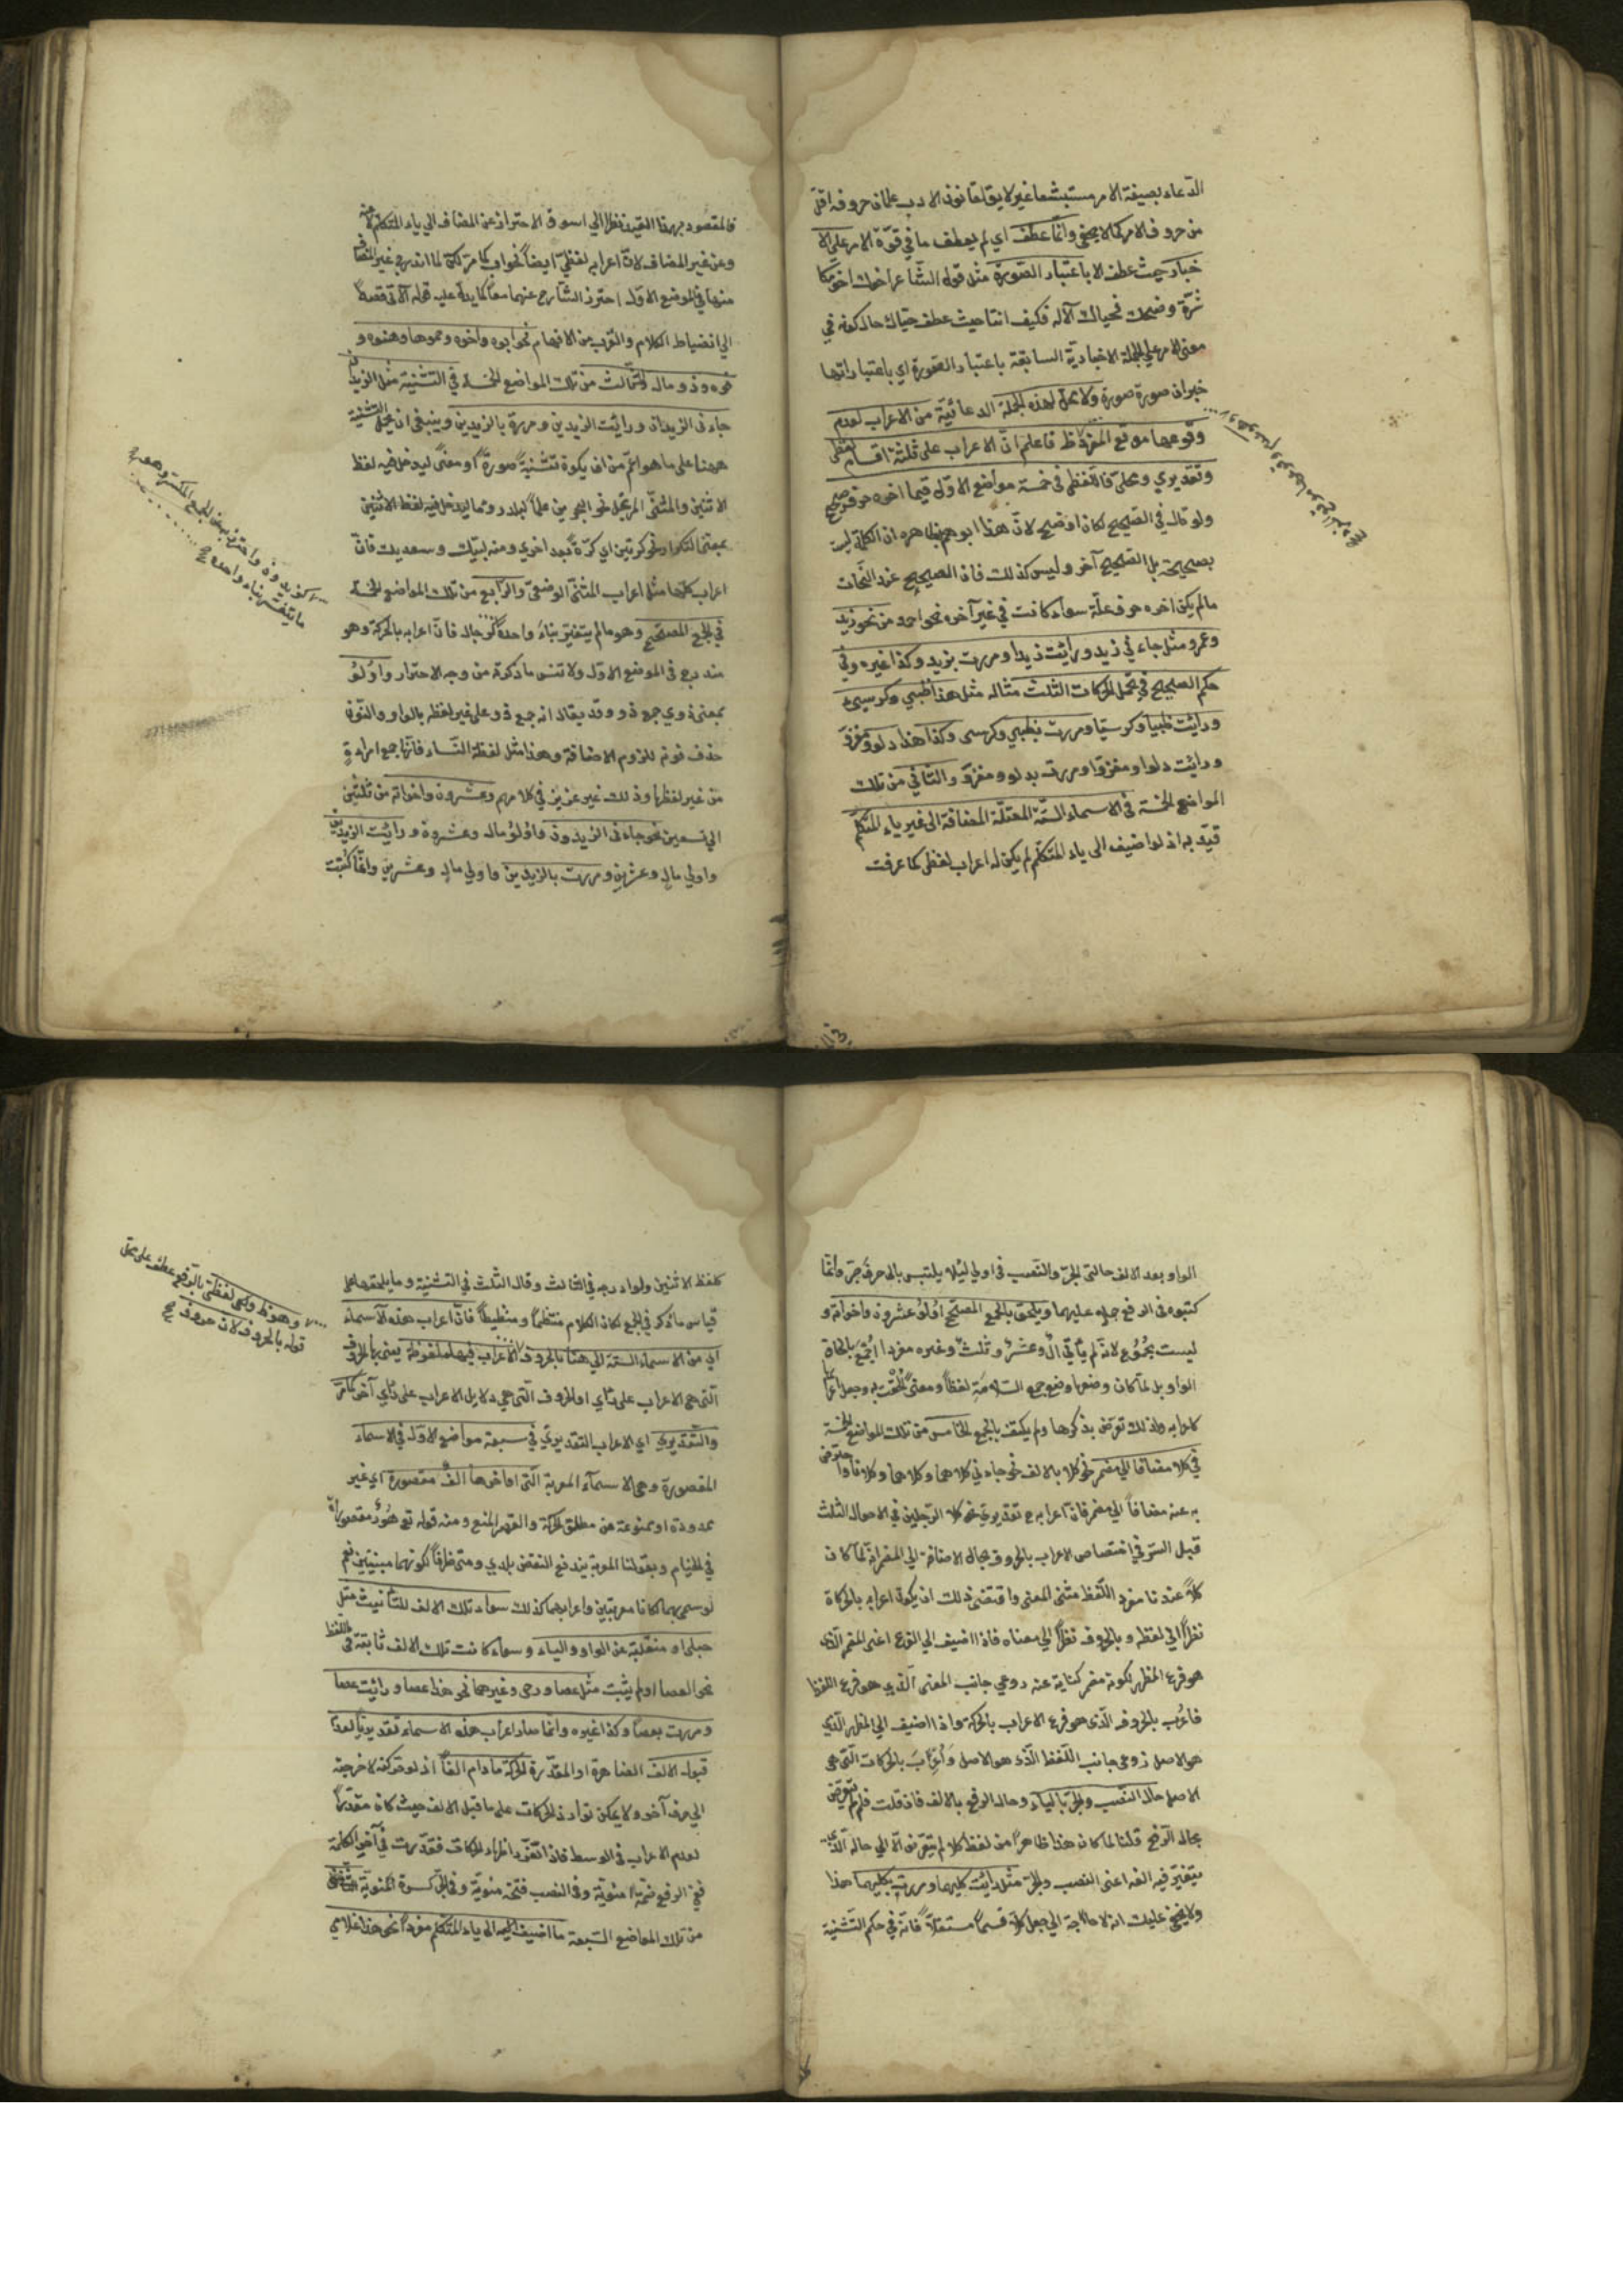 الدعاء بصيغة الامر مستبشعا غير لايق لقانون الادب علمان حروفه اقل
من حروف الامر كما لا يخفى وانما عطف اي لم يعطف ما في قوة الامر على الا
خبار حيث عطف الا باعتبار الصورة مثل قوله الشاعر
معنى الامر على الجملة الاخبارية السابقة باعتبار الصورة اي باعتبار انها
خبران صورة صورة ولا محل لهذه الجملة الدعائية من الاعراب لعدم
وقوعها موقع المفرد فاعلم ان الاعراب على ثلثة اقسام لفظي
وتقديري ومحلي فاللفظي في خمسة مواضع الاول فيما اخره حرف صحيح
ولو قال في الصحيح لكان اوضح لان هذا ابوهم بظاهره ان الكلمة ليست
بصحيحة بل الصحيح آخر وليس كذلك فان الصحيح عند النحات
مالم يكن اخره حرف علة سواء كانت في غير آخره نحو احمر ومن نحو زيد
وعمرو مثل جاءني زيد ورائيت زيدا ومررت بزيد وكذا غيره وفي
حكم الصحيح في تحمل الحركات الثلث مثاله مثل هذا ظبي وكرسي
ورائيت ظبيا وكرسيا ومررت بظبي وكرسى وكذا هذا دلو ومغزو
ورائيت دلوا ومغزوا ومررت بدلو ومغزو والثاني من تلك
المواضع الخمسة في الاسماء الستة المعتلة المضافة الى غير ياء المتكلم
قيد به اذ لو اضيف الى ياء المتكلم لم يكن له اعراب لفظي كما عرفت
فالمقصود بهذا القيد نظرا الي اسوق الاحتراز عن المضاف الي ياء المتكلم
وعن غير المضاف لان اعرابه لفظي ايضا نحو اب كما مر لكن لما اندرج غير المضاف
منها في الموضع الاول احترز الشارح عنهما معا كما يدل عليه قوله الاتي قصدا
الي انضباط الكلام والقرب من الافهام نحو ابوه واخوه وحموها وهنوه و
فوه وذو مال والثالث من تلك المواضع الخمسة في التثنية مثل الزيدان
جاءنى الزيدان ورائيت الزيدين ومررة بالزيدين وينبغي ان يحمل التثنية
ههنا على ما هو اعم من ان يكون تثنية صورة او معنى ليدخل فيه لفظ
الاثنين والمثنى المرتجل نحو البحرين علما لبلد
بمعنى التكرار نحو كرتين اي كرة بعد اخرى ومنه لبيك وسعديك فان
اعراب كلها مثل اعراب المثنى الوضعي والرابع من تلك المواضع الخمسة
في الجمع المصحح وهو مالم يتغير بناء واحده كرجال فان اعرابه بالحركة وهو
مندرج في الموضع الاول ولا تنس ما ذكرنا من وجه الاحتراز واولو
بمعنى ذوي جمع ذو وقد يقال انه جمع ذو على غير لفظه بالواو والنون
حذف نونه للزوم الاضافة وهذا مثل لفظة النساء فانها جمع امراءة
من غير لفظها وذلك غير عزيز في كلامهم وعشرون واخواته من ثلثين
الي تسعين نحو جاءنى الزيدون واولو مال وعشرون ورائيت الزيدين
واولي مال وعشرين ومررت بالزيدين واولي مال وعشرين وانما كتبت
الواو بعد الالف حالتي الجر والنصب في اولي لئلا يلتبس بالى حرف جر وانما
كتبوه في الرفع حملا عليهما ويلحق بالجمع المصحح اولو عشرون واخواته و
ليست بجموع لانه لم يأتي ال وعشر وثلث وغيره مفردا
الواو بل لما كان وضعها وضع جمع السلامة لفظا ومعنى الحقت به وجعل اعرابها
كاعرابه ولذلك تعرض بذكرها ولم يكتف بالجمع الخامس من تلك المواضع الخمسة
في كلا مضافا الي مضمر نحو كلا بالالف نحو جاءني كلاهما وكلاهما وكلا فاذا احترز
به عنه مضافا الي مضمر فان اعرابه ح تقديري نحو كلا الرجلين في الاحوال الثلث
قيل السر في اختصاص الاعراب بالحروف بحال الاضافة الي المضمر انه لما كان
كلا عندنا مفرد اللفظ مثنى المعنى واقتضى ذلك ان يكون اعرابه بالحركات
نظرا الي لفظه وبالحروف نظرا الي معناه فاذا اضيف الي الفرع اعنى المضمر الذي
هو فرع المظهر لكونه مضمر كناية عنه روعي جانب المعنى الذي هو فرع اللفظ
فاعرب بالحروف الذى هو فرع الاعراب بالحركة واذا اضيف الي المظهر الذي
هو الاصل روعي جانب اللفظ الذى هو الاصل واعرب بالحركات التى هى
الاصل حال النصب والجر بالياء وحال الرفع بالالف فان قلت فلم لم يتعرض
بحال الرفع قلنا لما كان هذا ظاهرا من لفظ كلا لم يتعرض الا الي حاله الذى
يتغير فيه الفه اعنى النصب والجر مثل رائيت كليهما ومررت بكليهما هذا
ولا يخفى عليك انه لا حاجة الي جعل كلا قسما مستقلا فانه في حكم التثنية
كلفظ الاثنين ولو ادرجه في الثالث وقال الثلث في التثنية وما يلحقها على
قياس ما ذكر في الجمع لكان الكلام منتظما ومنضبطا فان اعراب هذه الاسماء
اي من الاسماء الستة الي هنا بالحروف الاعراب فيها ملفوظة يعنى بالحروف
التى هى الاعراب على رأي او الحروف التى هي دلايل الاعراب على رأي آخر كما مر
والتقديري اي الاعراب التقديري في سبعة مواضع الاول في الاسماء
المقصورة وهي الاسماء المعربة التى اواخرها الف مقصورة اي غير
ممدودة او ممنوعة من مطلق الحركة والقصر المنع ومنه قوله تع حور مقصورات
في الخيام وبقولنا المعربة يندفع النقض بلدي ومتى ظرفا لكونهما مبنيتين نعم
لو سمي بهما كانا معربتين واعرابهما كذلك سواء تلك الالف للتأنيث مثل
حبلى او منقلبة عن الواو والياء وسواء كانت تلك الالف ثابتة فى اللفظ
نحو العصا او لم يثبت مثل عصا ورحى وغيرهما نحو هذا عصا ورائيت عصا
ومررت بعصا وكذا غيره وانما صار اعراب هذه الاسماء تقديريا لعدم
قبول الالف الظاهرة او المقدرة الحركة ما دام الفا اذ لو تحركت لا خرجت
الي حرف آخر ولا يمكن توارد الحركات على ما قبل الالف حيث كان مقدرا
لعدم الاعراب في الوسط فاذا تعذر اظهار الحركات فقدرت في آخر الكلمة
ففي الرفع ضمة منوية وفى النصب فتحة منوية وفى الجر كسرة منوية والثاني
من تلك المواضع السبعة ما اضيف اليه الى ياء المتكلم مفردا نحو هذا غلامي
وهو نظر ولفظي بالرفع عطف على محل
قوله بالحروف لان حروف